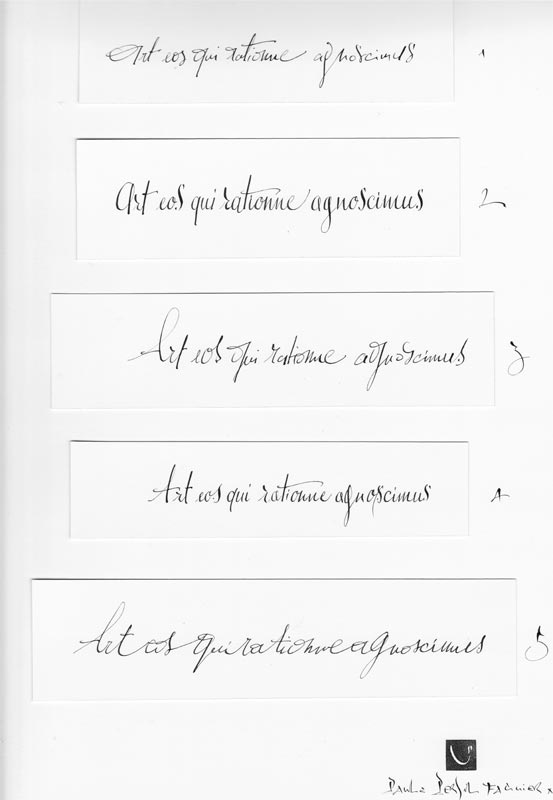 Art eos qui rationne agnoscimus 1
Art eos qui rationne agnoscimus 2
Art eos qui rationne agnoscimus 3
Art eos qui rationne agnoscimus 4
Art eos qui rationne agnoscimus 5